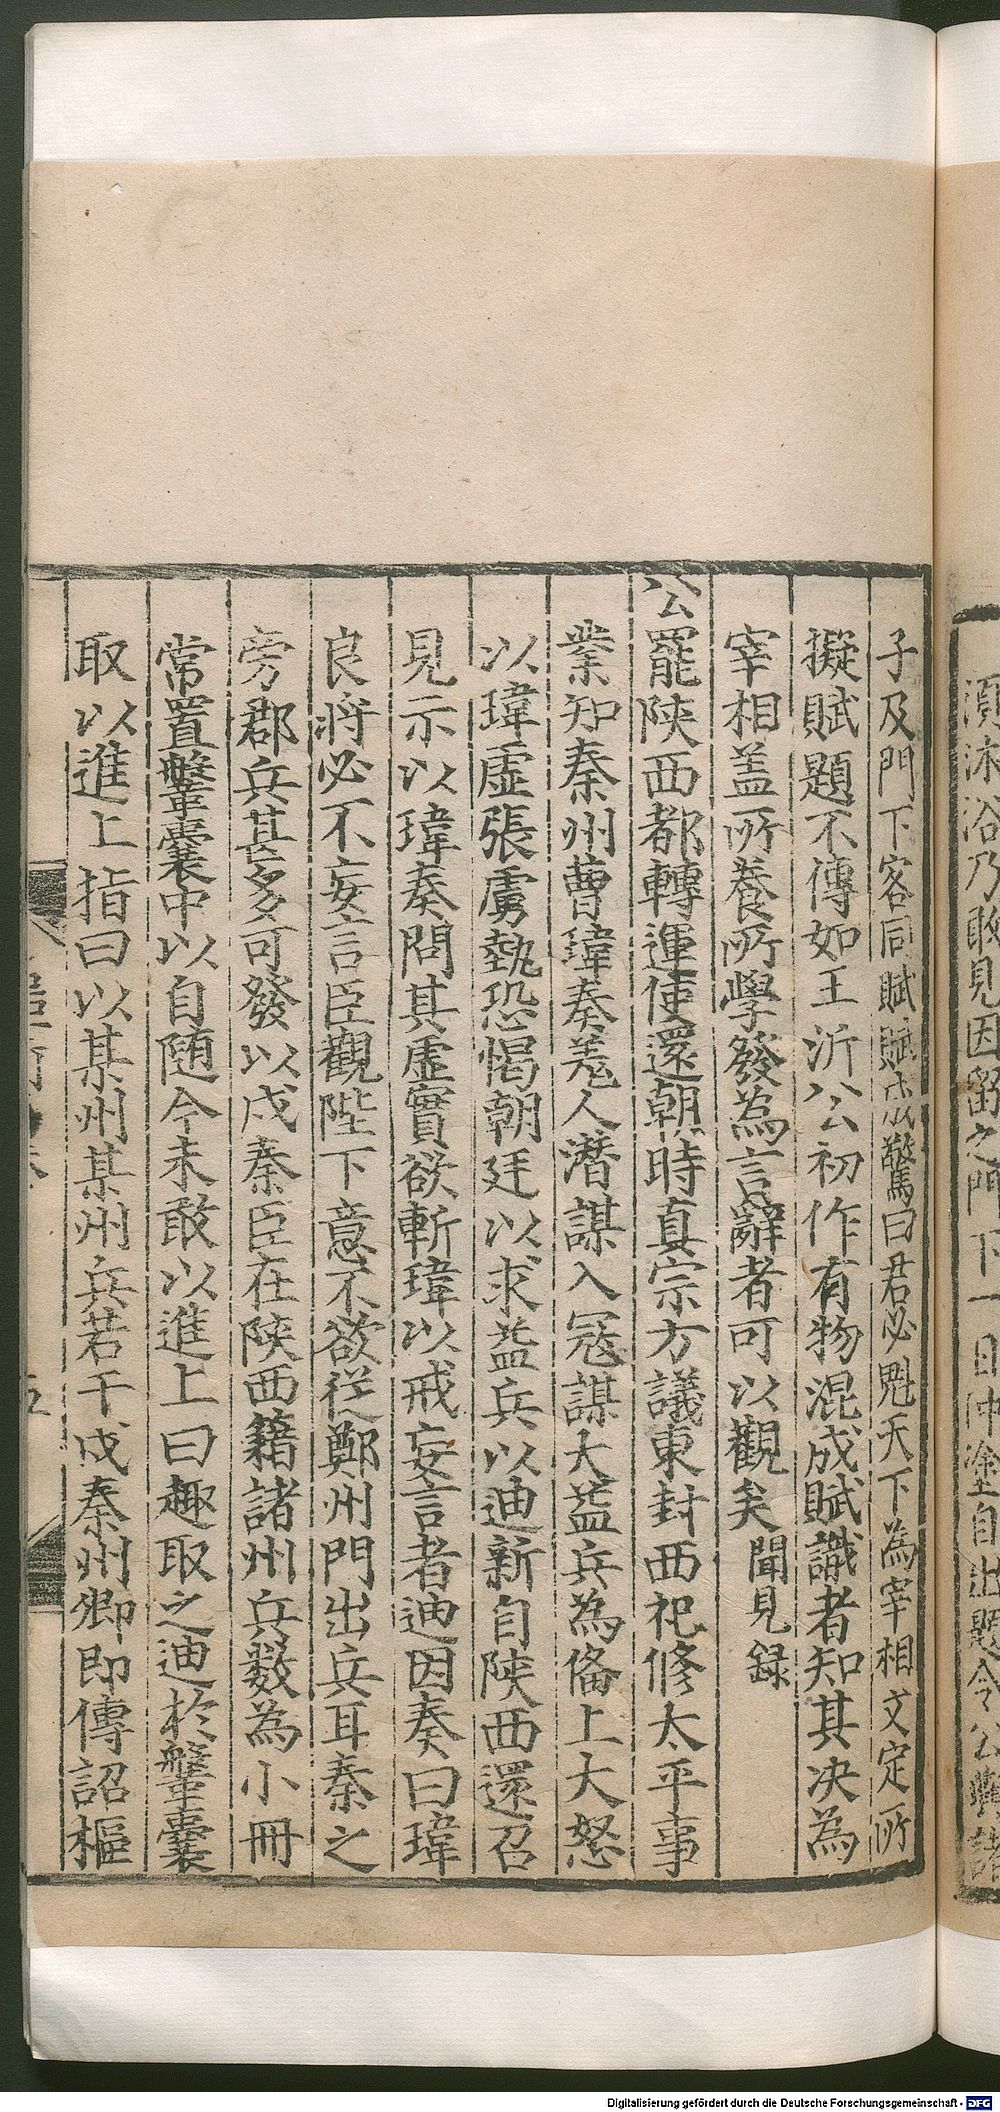 湏沐浴乃敢見因留之門下一日沖塗自出題令公與諸
子及門下客同賦賦成驚曰君必魁天下為宰相文定所
擬賦題不傳如王沂公初作有物混成賦識者知其决為
宰相盖所養所學發為言辭者可以觀矣 聞見録
公罷陜西都轉運使還朝時真宗方議東封西祀修太平事
業知秦州曹瑋奏羗人潛謀入冦謀大益兵為俻上大怒
以瑋虛張虜埶恐愒朝廷以求益兵以迪新自陜西還召
見示以瑋奏問其虛實欲斬瑋以戒妄言者迪因奏曰瑋
良將必不妄言臣觀陛下意不欲從鄭州門出兵耳秦之
旁郡兵甚多可發以戍秦臣在陜西籍諸州兵数為小冊
常置鞶囊中以自随今未敢以進上曰趣取之迪於鞶囊
取以進上指曰以某州某州兵若干戍秦州卿即傳詔樞
五
Digitalisierung gefördert durch die Deutsche Forschungsgemeinschaft - DFG